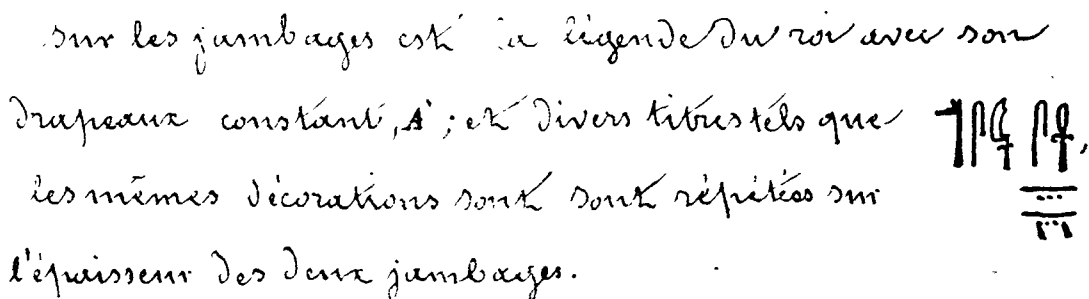 sur les jambages est la légende du roi avec son
drapeaux constant, A'; et divers titres tels que
les mêmes décorations sont sont répétées sur
l'épaisseur des deux jambages.